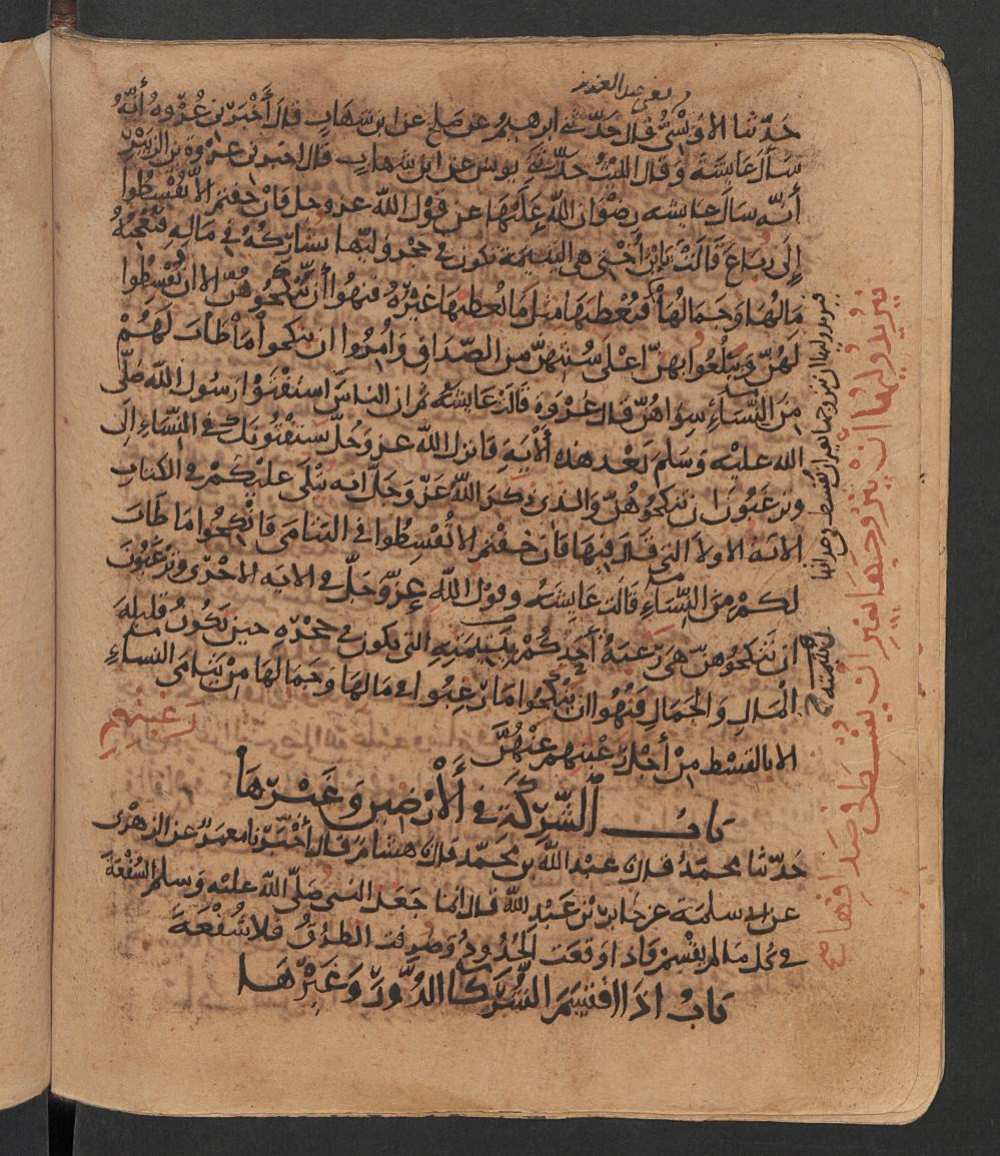 يعنى عبد العزيز
حَدّثنا الاوَيْسِيُّ قال حَدّثنى ابرهيم عن صَلح عن ابن شهاب قال أخْبَرنى عُرْوةُ أنَّهُ
سَأَلَ عَايشَة وَقال الليْثُ حدّثنى يونس عن ابن شهاب قال اخبرنى عُرْوة بن الزبَيْرِ
أنّه سَالَ عايشه رضْوَان اللهِ عَلَيْهَا عن قَوْل الله عز وجل فانْ خفتم الاّ تُقْسطُوا
إلَى رباعَ قَالَتْ يَابْنَ أُخْتى هى اليتيمة تكون فى حجر وليّها تشاركُهُ فى مَالِهِ فيُعْجبُهُ
مَالُهَا وَجَمَالُهَا فيُعْطيَهَا مثلَ مَا يُعطيهَا غيْرُهُ فنهُوا أنْ يَنْكحُوهُنّ الا ان يُقْسطُوا
لَهُنّ وَيَبْلُغُوا بهنّ اعْلى سُنتهنّ من الصّدَاق وَأُمِرُوا ان ينكحوا مَا طابَ لَهُمْ
مِنَ النّسَاءِ سِوَاهُنّ قال عُرْوَة قالت عَايشة ثم ان الناسَ استفْتَوْا رَسُول الله صَلّى
الله عليْه وَسَلمَ بَعْد هذه الأيَةِ فانزل اللّه عز وَجَلّ يَسْتفْتُونك فى النّسَاء إلَى
وترغَبُون ان تنكحُوهُنّ وَالذى ذكرَ اللّهُ عَزّ وَجَلّ انه يُتْلَى عليْكمْ فى الكتاب
الايَة الاولَى التى قالَ فيهَا فَانْ خفْتم الا تُقْسِطُوا فى اليتامَى فَانْكِحُوا مَا طَابَ
لكمْ مِنَ النّسَاءِ قَالَت عَايشَةُ وقوْل الله عزّ وَجلّ فى الايه الاخرَى وَترْغَبُونَ
ان تَنْكحُوهُنّ هىَ رَغبَةُ أحدكُمْ بيَتيمَتِهِ التى تكون فى حَجْرِهِ حين تَكُونُ قليلةَ
الْمَالِ وَالجمَالِ فَنُهُوا انْ يَنْكِحُوا مَا رَغِبُوا فى مَالِهَا وَجَمَالهَا مِنْ يَتامَى النسَاءِ
الا بالقسْط مِنْ أَجْل رَغْبتِهم عَنْهُنَّ
بَابُ الشّرِكَةِ فى الْأَرَضِين وَغَيْرهَا
حَدّثنا محمدُ قال عبد الله بن محمّد قال هشامٌ قال أخْبَرَنا معمَرٌ عن الزهْرى
عن ابى سلمة عن جَابر بْن عَبْدِ اللّه قال انما جَعَل النبى صَلّى اللّه عليْه وَسلم الشُفْعَةَ
فى كُل مَا لم يقْسَمْ فاذا وَقعَت الحُدودُ وَصُرفت الطُرُقُ فلا شُفْعَةَ
بَابُ اذَا اقتسَمَ الشُّرَكَاءُ الدُّورَ وَغَيْرَهَا
يُريدُ وَليُّهَا أنْ يتزوجهَا بغير ان يقسط فى صَدَاقهَا
فيريد وليها ان يتزوجها بغير ان يقسط فى صداقها